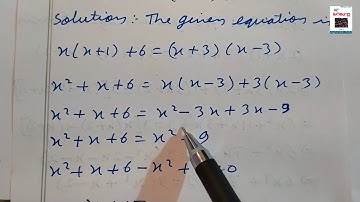 Solution:- The given equation is
x(x+1)+6=(x+3)(x-3)
x²+x+6=x(x-3)+3(x-3)
x²+x+6=x²-3x+3x-9
x²+x+6=x²-9
x²+x+6-x²+ 0